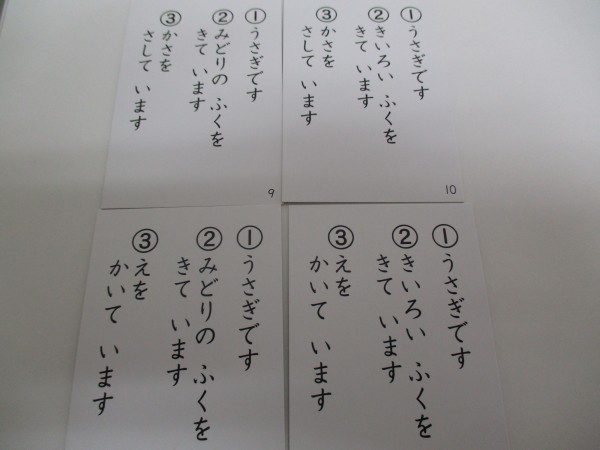 ①うさぎです
②みどりの ふくを
きて います
③かさを
さして います
9
①うさぎです
②きいろい ふくを
きて います
③かさを
さして います
10
①うさぎです
②みどりの ふくを
きて います
③えを
かいて います
①うさぎです
②きいろい ふくを
きて います
③えを
かいて います